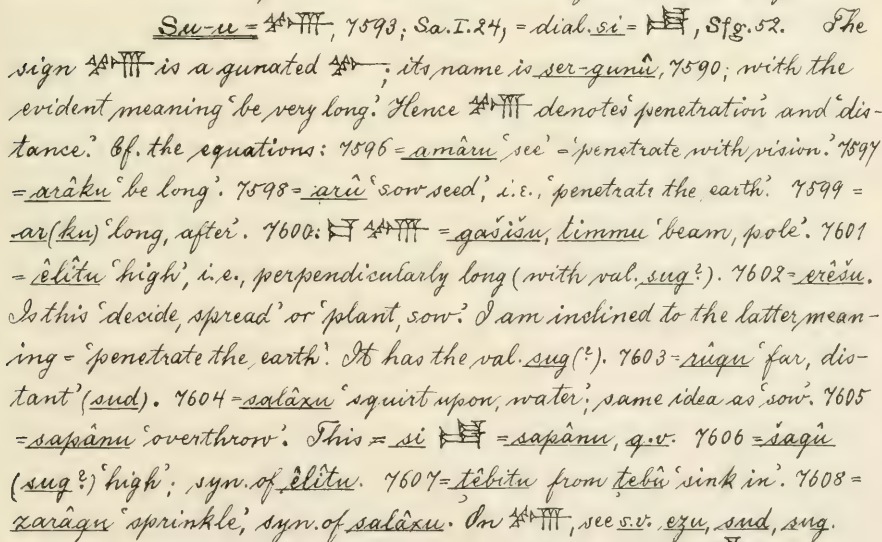 Su-u = 𒋤, 7593; Sa. I. 24, = dial. si = , Sfg. 52. The
sign 𒋤 is a gunated 𒁍; its name is ser-gunû, 7590; with the
evident meaning 'be very long.' Hence 𒋤 denotes 'penetration' and 'dis-
tance.' Cf. the equations: 7596 = amâru 'see' = 'penetrate with vision.' 7597
= arâku 'be long'. 7598 = arû 'sow seed', i.e., 'penetrate the earth'. 7599 =
ar(ku) 'long, after'. 7600: 𒄑 𒋤 = gašišu, timmu 'beam, pole'. 7601
= êlîtu 'high', i.e., perpendicularly long (with val. sug?). 7602 = erêšu.
Is this 'decide, spread' or 'plant, sow.' I am inclined to the latter mean-
ing = 'penetrate the earth'. It has the val. sug(?). 7603 = rûqu 'far, dis-
tant' (sud). 7604 = salâxu 'squirt upon, water'; same idea as 'sow.' 7605
= sapânu 'overthrow'. This = si = sapânu, q.v. 7606 = šaqû
(sug?) 'high'; syn. of êlîtu. 7607 = ṭêbitu from ṭebû 'sink in'. 7608 =
zarâqu 'sprinkle,' syn. of salâxu. On 𒋤, see s.v. ezu, sud, sug.